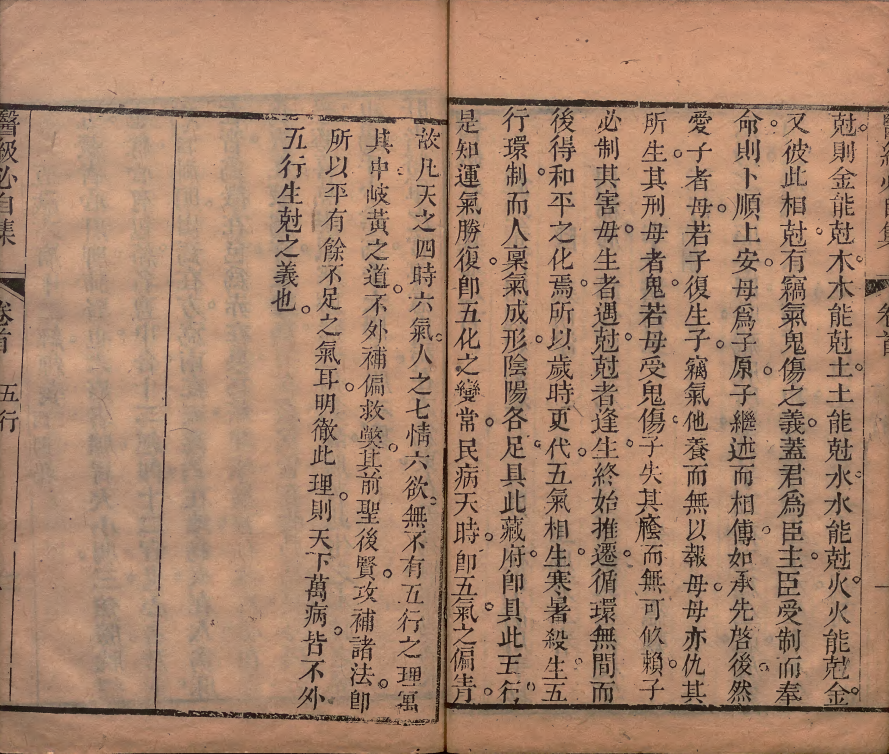 尅則金能尅木木能尅土土能尅水水能尅火火能尅金
又彼此相尅有竊氣鬼傷之義蓋君爲臣主臣受制而奉
命則下順上安母爲子原子繼述而相傳如承先啓後然
愛子者母若子復生子竊氣他養而無以報母母亦仇其
所生其刑母者鬼若母受鬼傷子失其廕而無可依賴子
必制其害母生者遇尅尅者逢生終始推遷循環無間而
後得和平之化焉所以歲時更代五氣相生寒暑殺生五
行環制而人稟氣成形陰陽各足具此藏府卽具此五行
是知運氣勝復卽五化之變常民病天時卽五氣之偏眚
故凡天之四時六氣人之七情六欲無不有五行之理寓
其中岐黃之道不外補偏救獘其前聖後賢攻補諸法卽
所以平有餘不足之氣耳明徹此理則天下萬病皆不外
五行生尅之義也
醫級必自集
卷首
五行